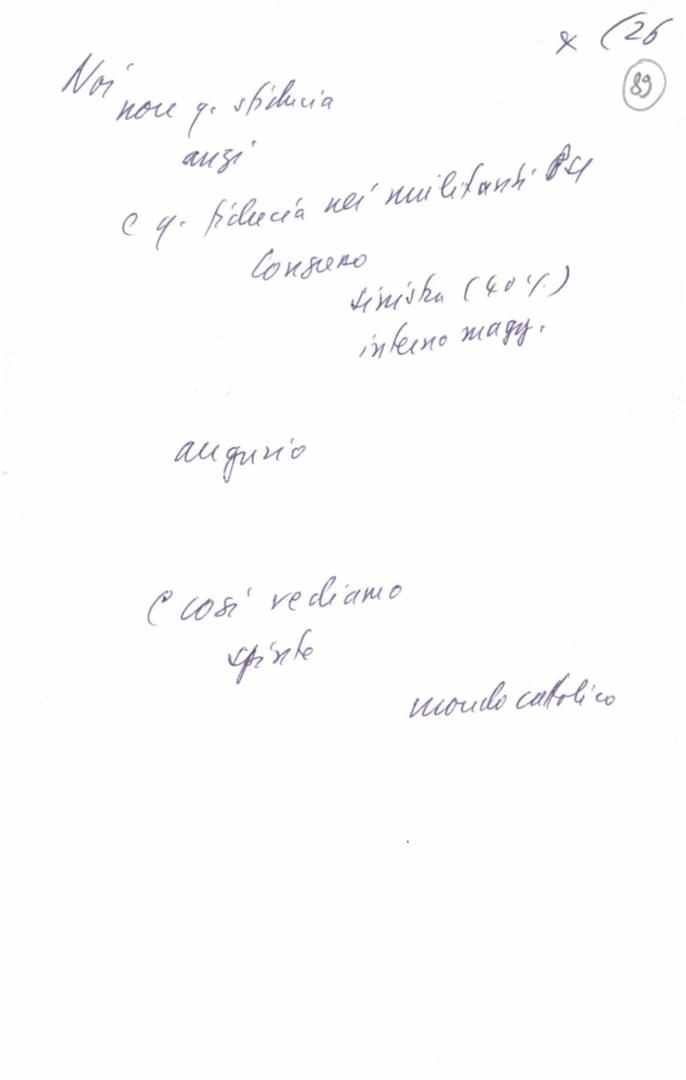 x (26
89
Noi
non q. sfiducia
anzi
e q. fiducia nei militanti PSI
Congresso
sinistra (40%)
interno magg.
augurio
E così vediamo
spinte
mondo cattolico